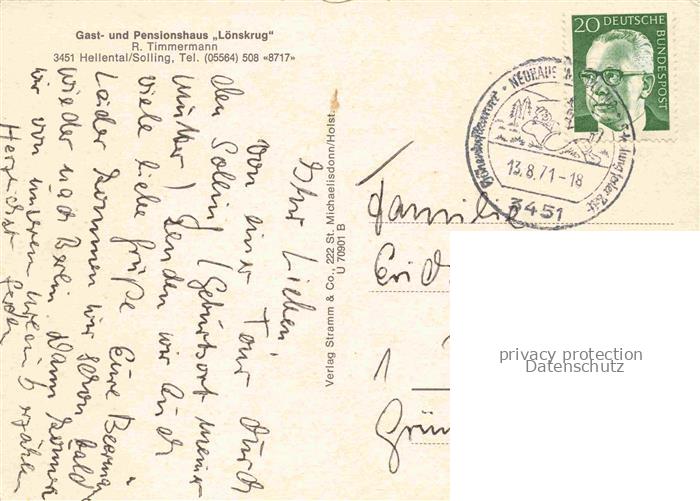 Gast- und Pensionshaus „Lönskrug“
R. Timmermann
3451 Hellental/Solling, Tel. (05564) 508 «8717»
Ihr Lieben,
von einer Tour durch
den Solling (Geburtsort meiner
Mutter) senden wir Euch
viele liebe Grüße Eure
Leider kommen wir schon bald
wieder nach Berlin. Dann können
wir von unserem Urlaub erzählen
Herzlichst
Verlag Stramm & Co., 222 St. Michaelisdonn/Holst.
U 70901 B
20 DEUTSCHE
BUNDESPOST
NEUHAUS
13.8.71-18
3451
Familie
1
privacy protection
Datenschutz